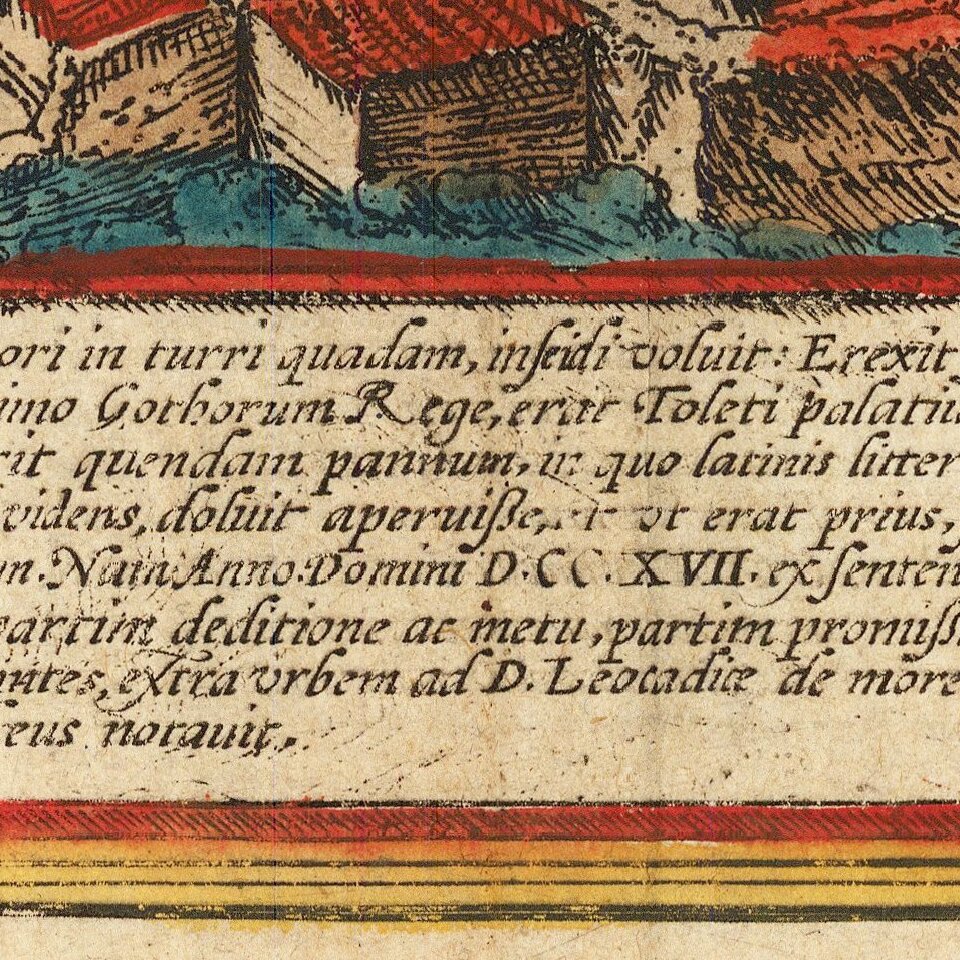 ori in turri quadam, insidi voluit: Erexit
Gothorum Rege, erat Toleti palatiu
rit quendam pannum, in quo latinis litter
videns, doluit aperuiße, et vt erat prius,
m. Nam Anno Domini D.CC.XVII. ex senten
partim deditione ac metu, partim promiss
extra vrbem ad D. Leocadiæ de more
eus notauit.